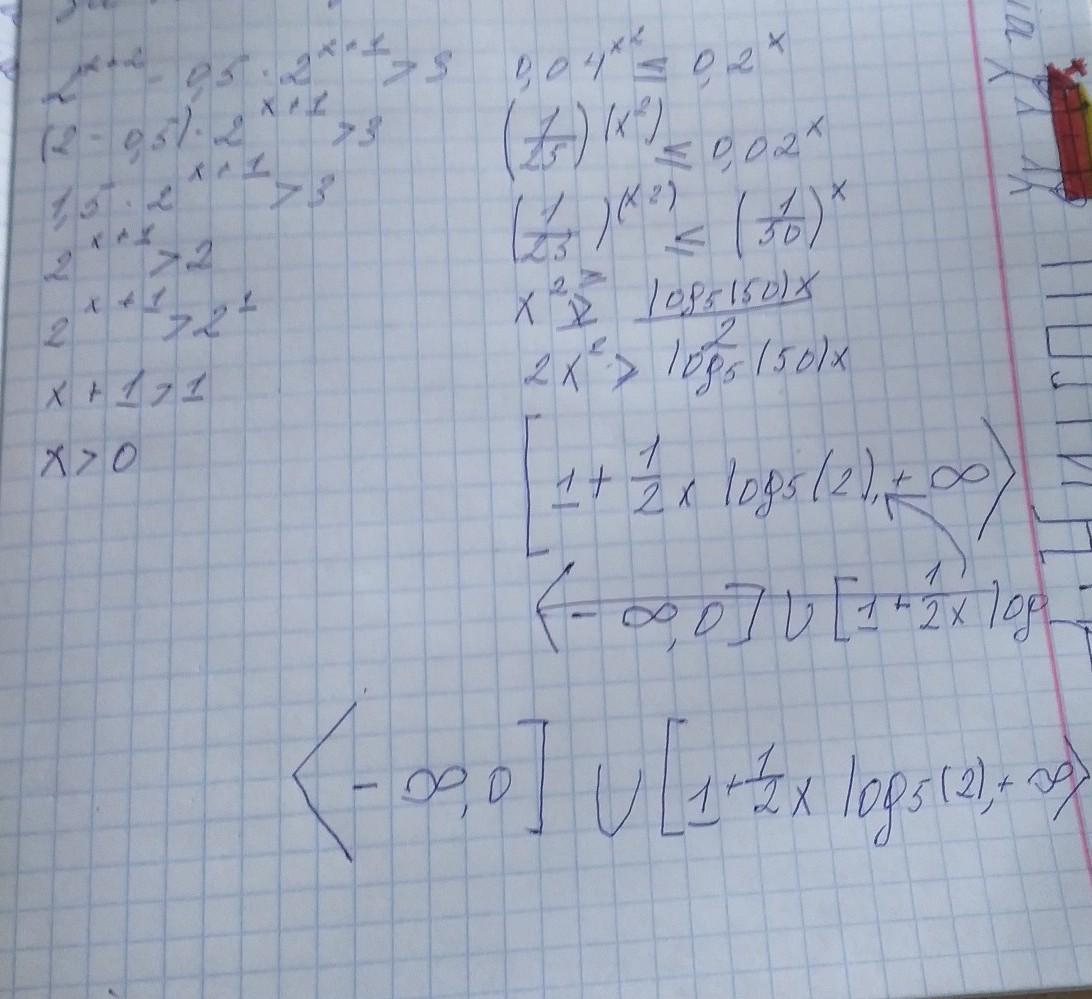 2^{x+2} - 0,5 · 2^{x+1} > 3
(2 - 0,5) · 2^{x+1} > 3
1,5 · 2^{x+1} > 3
2^{x+1} > 2
2^{x+1} > 2^1
x + 1 > 1
x > 0
0,04^{x^2} ≤ 0,2^x
(1/25)^{(x^2)} ≤ 0,02^x
(1/25)^{(x^2)} ≤ (1/50)^x
x^2 ≥ log5(50)x / 2
2x^2 > log5(50)x
[1 + 1/2 x log5(2), + ∞⟩
⟨- ∞, 0] ∪ [1 + 1/2 x log
⟨- ∞, 0] ∪ [1 + 1/2 x log5(2), + ∞⟩